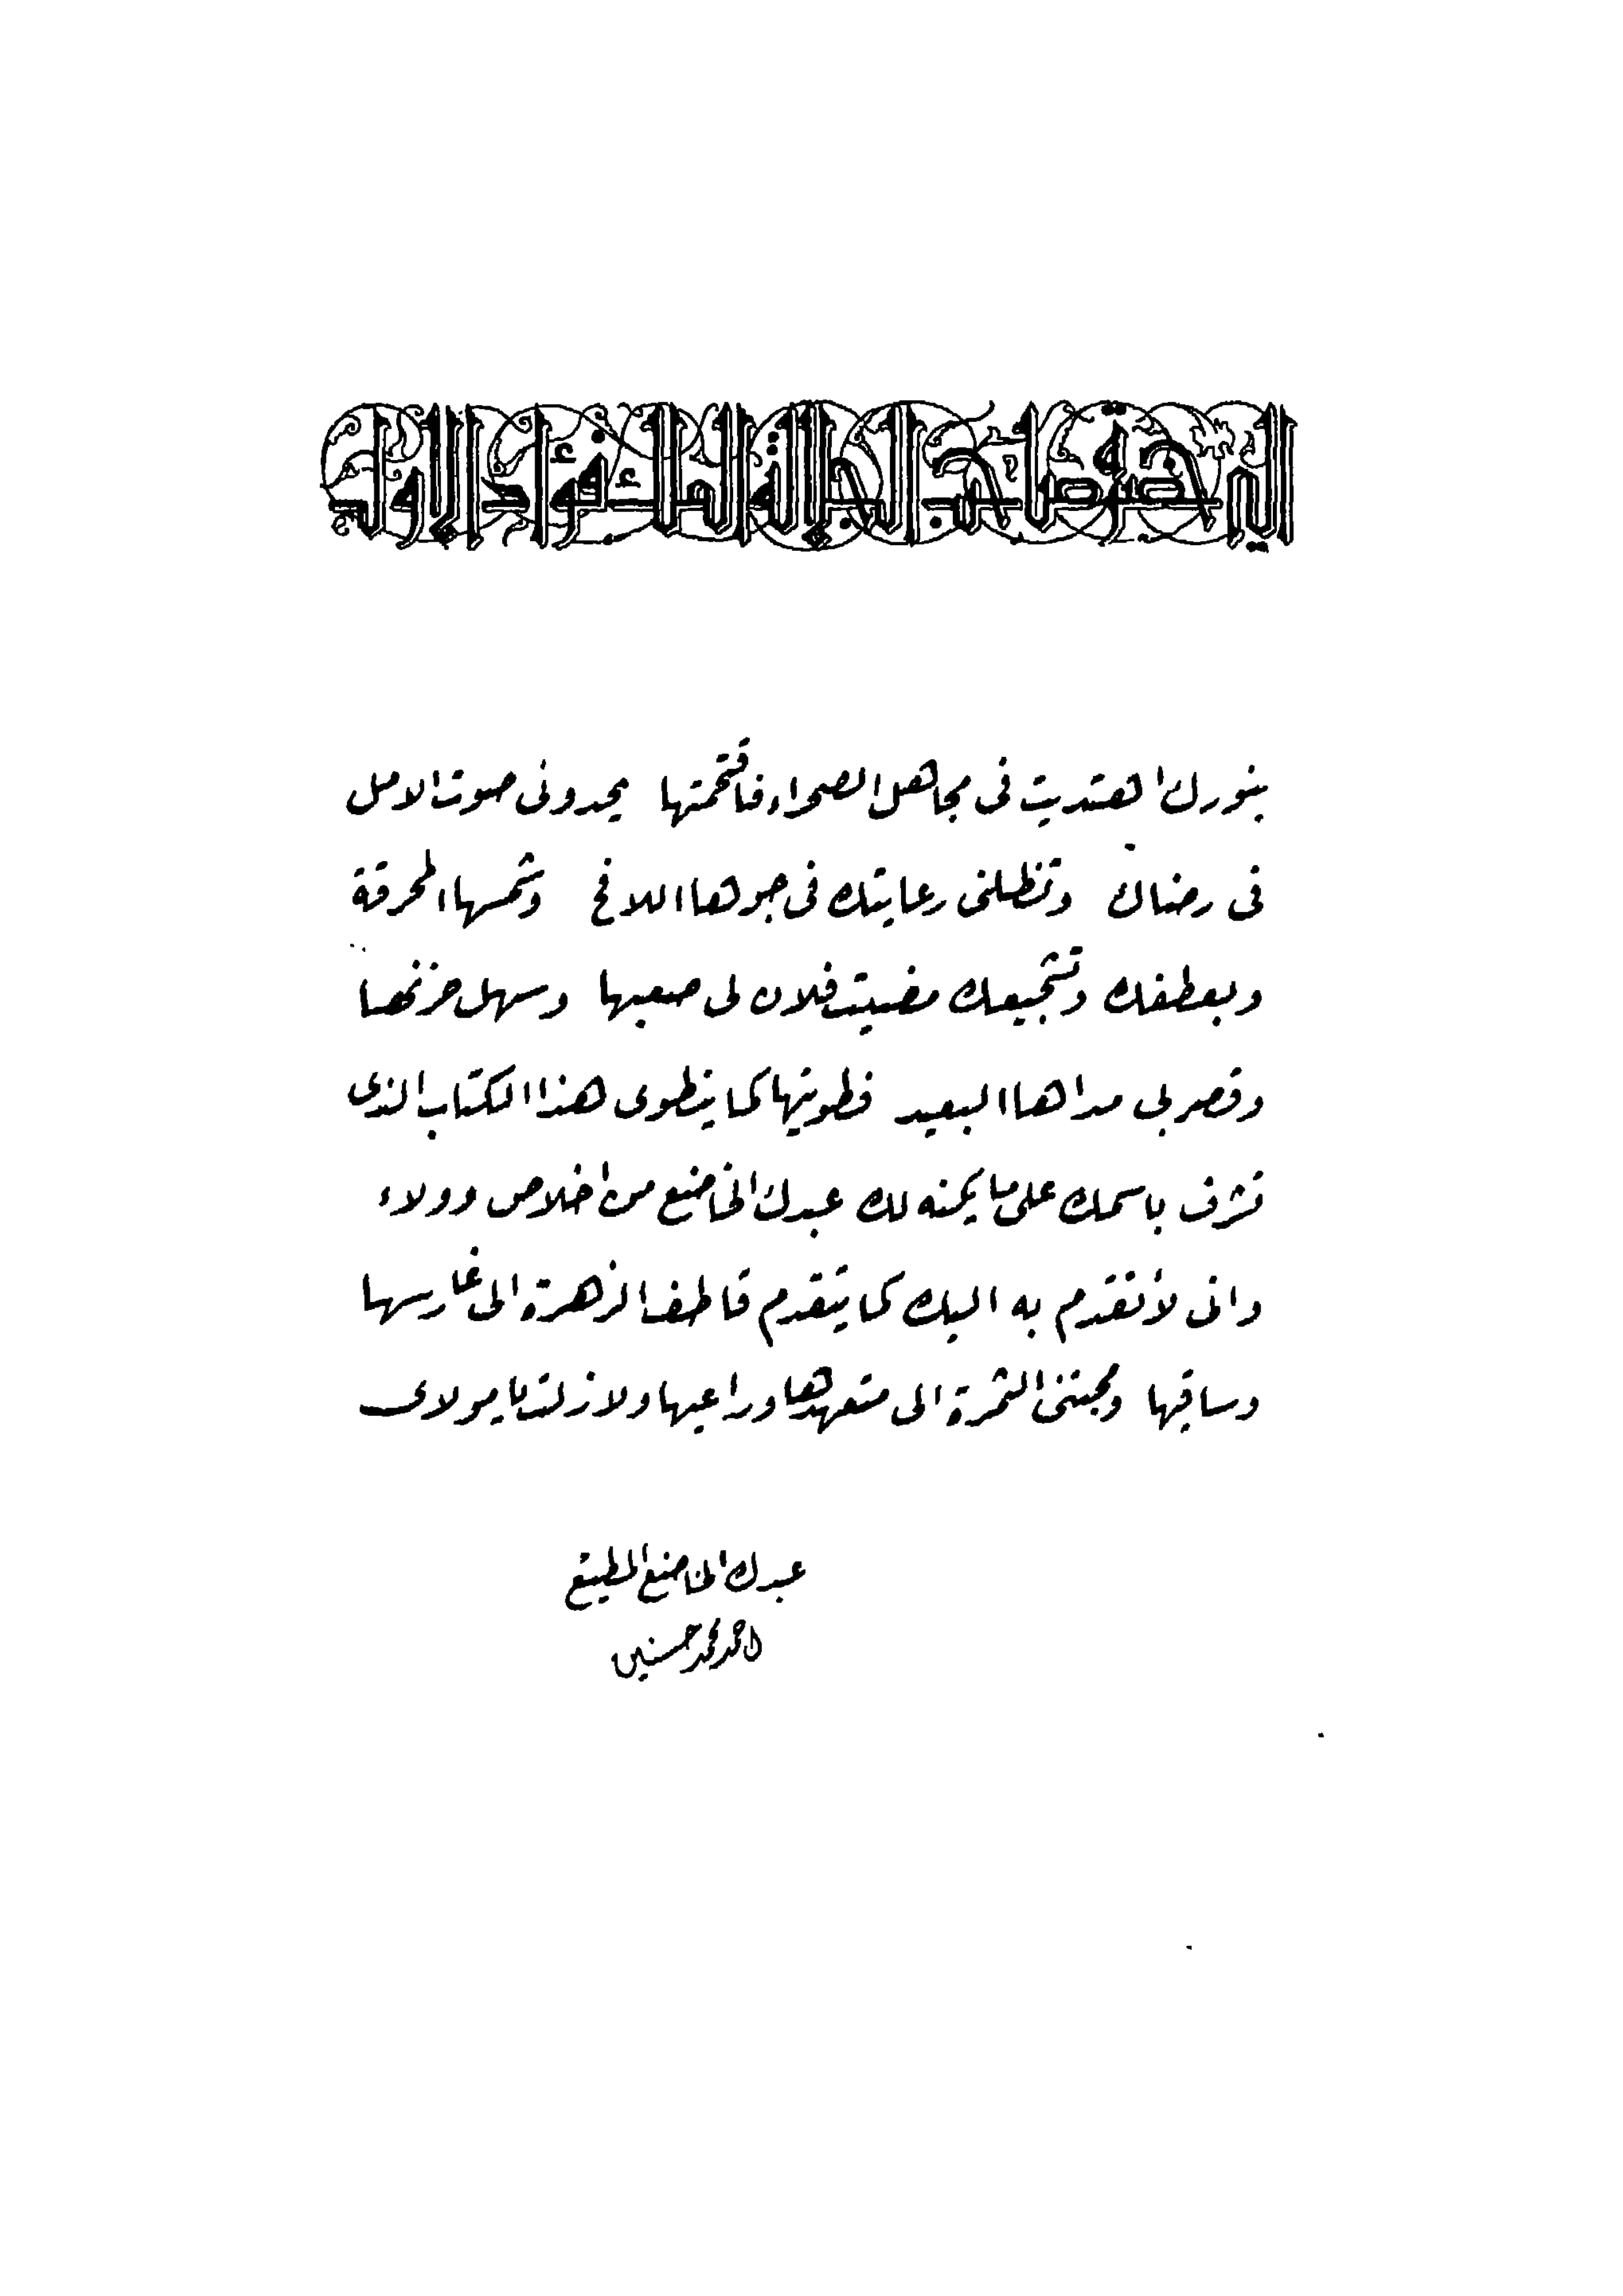 الى حضرة صاحب الجلالة الملك فؤاد الأول
بنورك اهتديت فى مجاهل الصحراء فاقتحمتها يحدونى صوت الامل
فى رضاك وتظلنى رعايتك فى جوها اللافح وشمسها المحرقة
وبعطفك وتشجيعك مضيت فلان لى صعبها وسهل حزنها
وقصر لى مداها البعيد فطويتها كما ينطوى هذا الكتاب الذى
تشرف باسمك على ما يكنه لك عبدك الخاضع من اخلاص وولاء
وانى لأتقدم به اليك كما يتقدم قاطف الزهرة الى غارسها
وساقيها ومجتنى الثمرة الى متعهدها وراعيها ولا زلت يا مولاى
عبدك الخاضع المطيع
احمد محمد حسنين